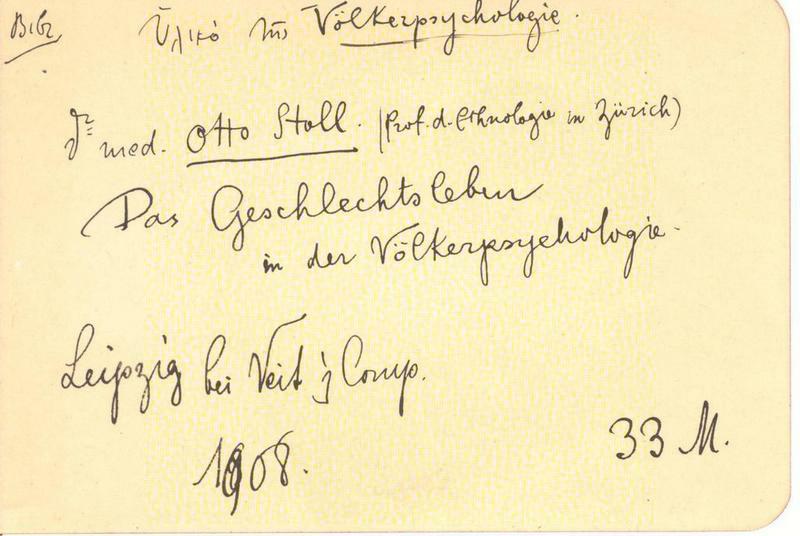 Βιβλ
Ὑλικό τῆς Völkerpsychologie.
Dr med. Otto Stoll. (Prof. d. Ethnologie in Zürich)
Das Geschlechtsleben
in der Völkerpsychologie.
Leipzig bei Veit & Comp.
1908.
33 M.